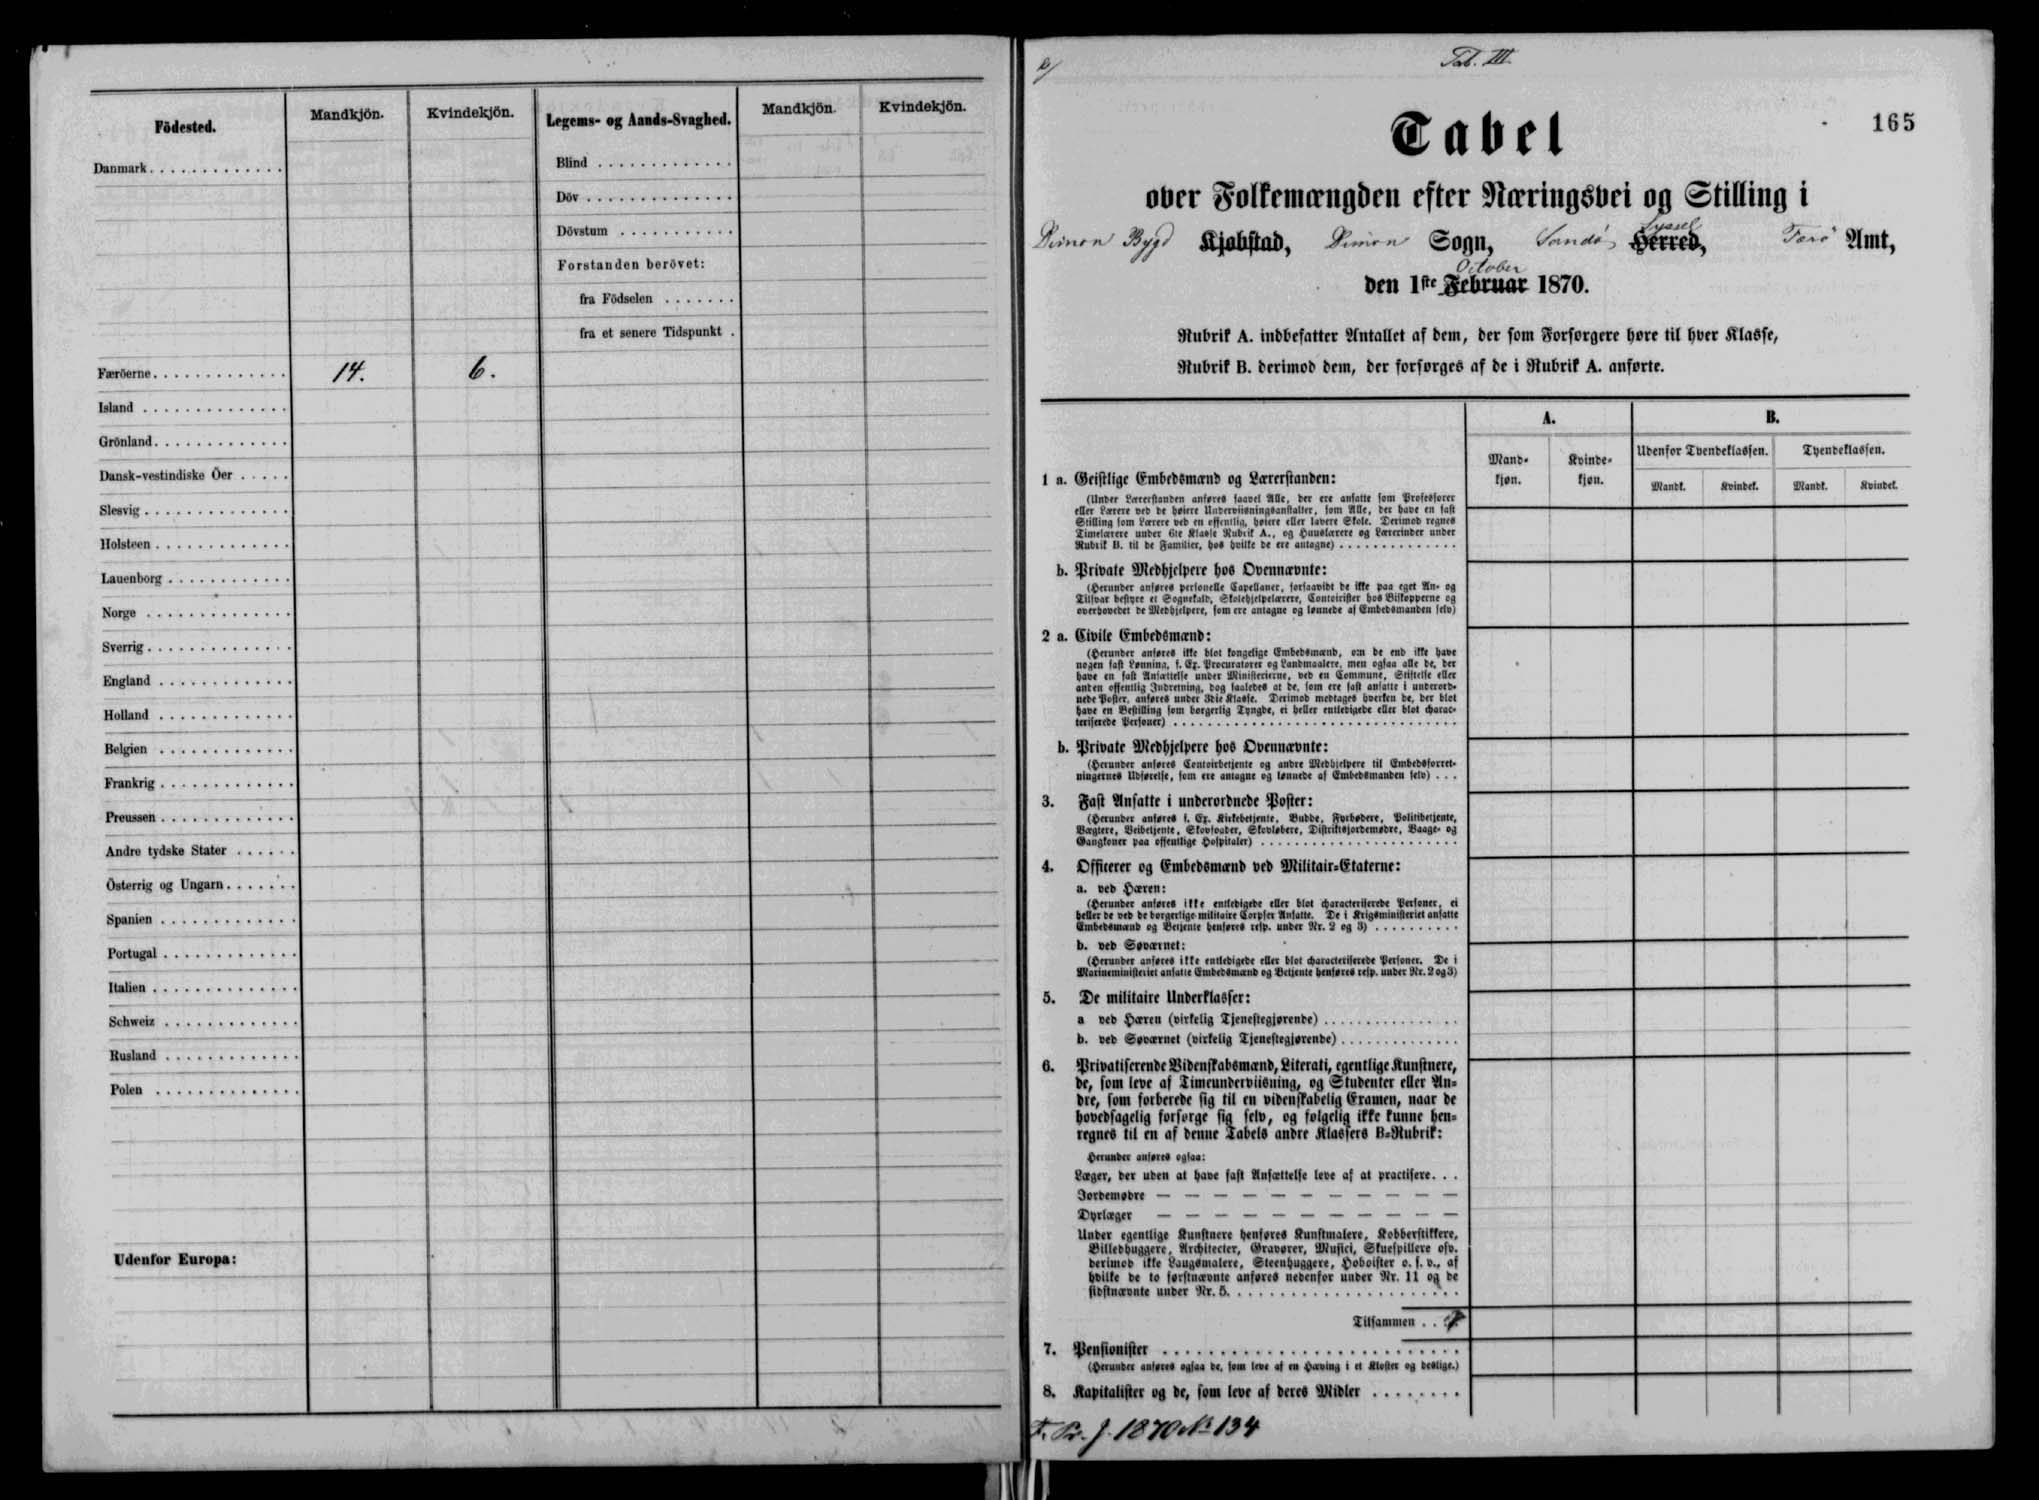 Födested. Mandkjön. Kvindekjön. Legems- og Aands-Svaghed. Mandkjön. Kvindekjön.
Danmark
Blind
Döv
Dövstum
Forstanden berövet:
fra Födselen
fra et senere Tidspunkt
Færöerne 14. 6.
Island
Grönland
Dansk-vestindiske Öer
Slesvig
Holsteen
Lauenborg
Norge
Sverrig
England
Holland
Belgien
Frankrig
Preussen
Andre tydske Stater
Österrig og Ungarn
Spanien
Portugal
Italien
Schweiz
Rusland
Polen
Udenfor Europa:
Tab. III.
165
Tabel
over Folkemængden efter Næringsvei og Stilling i
Dimon Bygd Kjøbstad, Dimon Sogn, Sandö Herred, Syssel Færö Amt,
den 1ste Februar October 1870.
Rubrik A. indbefatter Antallet af dem, der som Forsørgere høre til hver Klasse,
Rubrik B. derimod dem, der forsørges af de i Rubrik A. anførte.
A. B.
Mandkjøn. Kvindekjøn. Udenfor Tyendeklassen. Tyendeklassen.
Mandk. Kvindek. Mandk. Kvindek.
1 a. Geistlige Embedsmænd og Lærerstanden:
(Under Lærerstanden anføres saavel Alle, der ere ansatte som Professorer
eller Lærere ved de høiere Underviisningsanstalter, som Alle, der have en fast
Stilling som Lærere ved en offentlig, høiere eller lavere Skole. Derimod regnes
Timelærere under 6te Klasse Rubrik A., og Huuslærere og Lærerinder under
Rubrik B. til de Familier, hos hvilke de ere antagne)
b. Private Medhjelpere hos Ovennævnte:
(Herunder anføres personelle Capellaner, forsaavidt de ikke paa eget An- og
Tilsvar bestyre et Sognekald, Skolehjelpelærere, Contoirister hos Biskopperne og
overhovedet de Medhjelpere, som ere antagne og lønnede af Embedsmanden selv)
2 a. Civile Embedsmænd:
(Herunder anføres ikke blot kongelige Embedsmænd, om de end ikke have
nogen fast Lønning, f. Ex. Procuratorer og Landmaalere, men ogsaa alle de, der
have en fast Ansættelse under Ministerierne, ved en Commune, Stiftelse eller
anden offentlig Indretning, dog saaledes at de, som ere fast ansatte i underord-
nede Poster, anføres under 3die Klasse. Derimod medtages hverken de, der blot
have en Bestilling som borgerlig Tyngde, ei heller entledigede eller blot charac-
teriserede Personer)
b. Private Medhjelpere hos Ovennævnte:
(Herunder anføres Contoirbetjente og andre Medhjelpere til Embedsforret-
ningernes Udførelse, som ere antagne og lønnede af Embedsmanden selv)
3. Fast Ansatte i underordnede Poster:
(Herunder anføres f. Ex. Kirkebetjente, Budde, Fyrbødere, Politibetjente,
Vægtere, Veibetjente, Skovfogder, Skovløbere, Distriktsjordemødre, Vaage- og
Gangkoner paa offentlige Hospitaler)
4. Officerer og Embedsmænd ved Militair-Etaterne:
a. ved Hæren:
(Herunder anføres ikke entledigede eller blot characteriserede Personer, ei
heller de ved de borgerlige militaire Corpser Ansatte. De i Krigsministeriet ansatte
Embedsmænd og Betjente henføres resp. under Nr. 2 og 3)
b. ved Søværnet:
(Herunder anføres ikke entledigede eller blot characteriserede Personer. De i
Marineministeriet ansatte Embedsmænd og Betjente henføres resp. under Nr. 2 og 3)
5. De militaire Underklasser:
a ved Hæren (virkelig Tjenestegjørende)
b. ved Søværnet (virkelig Tjenestegjørende)
6. Privatiserende Videnskabsmænd, Literati, egentlige Kunstnere,
de, som leve af Timeunderviisning, og Studenter eller An-
dre, som forberede sig til en videnskabelig Examen, naar de
hovedsagelig forsørge sig selv, og følgelig ikke kunne hen-
regnes til en af denne Tabels andre Klassers B-Rubrik:
Herunder anføres ogsaa:
Læger, der uden at have fast Ansættelse leve af at practisere
Jordemødre — — — — — — — — — — —
Dyrlæger — — — — — — — — — — —
Under egentlige Kunstnere henføres Kunstmalere, Kobberstikkere,
Billedhuggere, Architecter, Gravører, Musici, Skuespillere osv.
derimod ikke Laugsmalere, Steenhuggere, Hoboister o. s. v., af
hvilke de to førstnævnte anføres nedenfor under Nr. 11 og de
sidstnævnte under Nr. 5.
Tilsammen
7. Pensionister
(Herunder anføres ogsaa de, som leve af en Hæving i et Kloster og deslige.)
8. Kapitalister og de, som leve af deres Midler
F. Pr. J. 1870 No 134